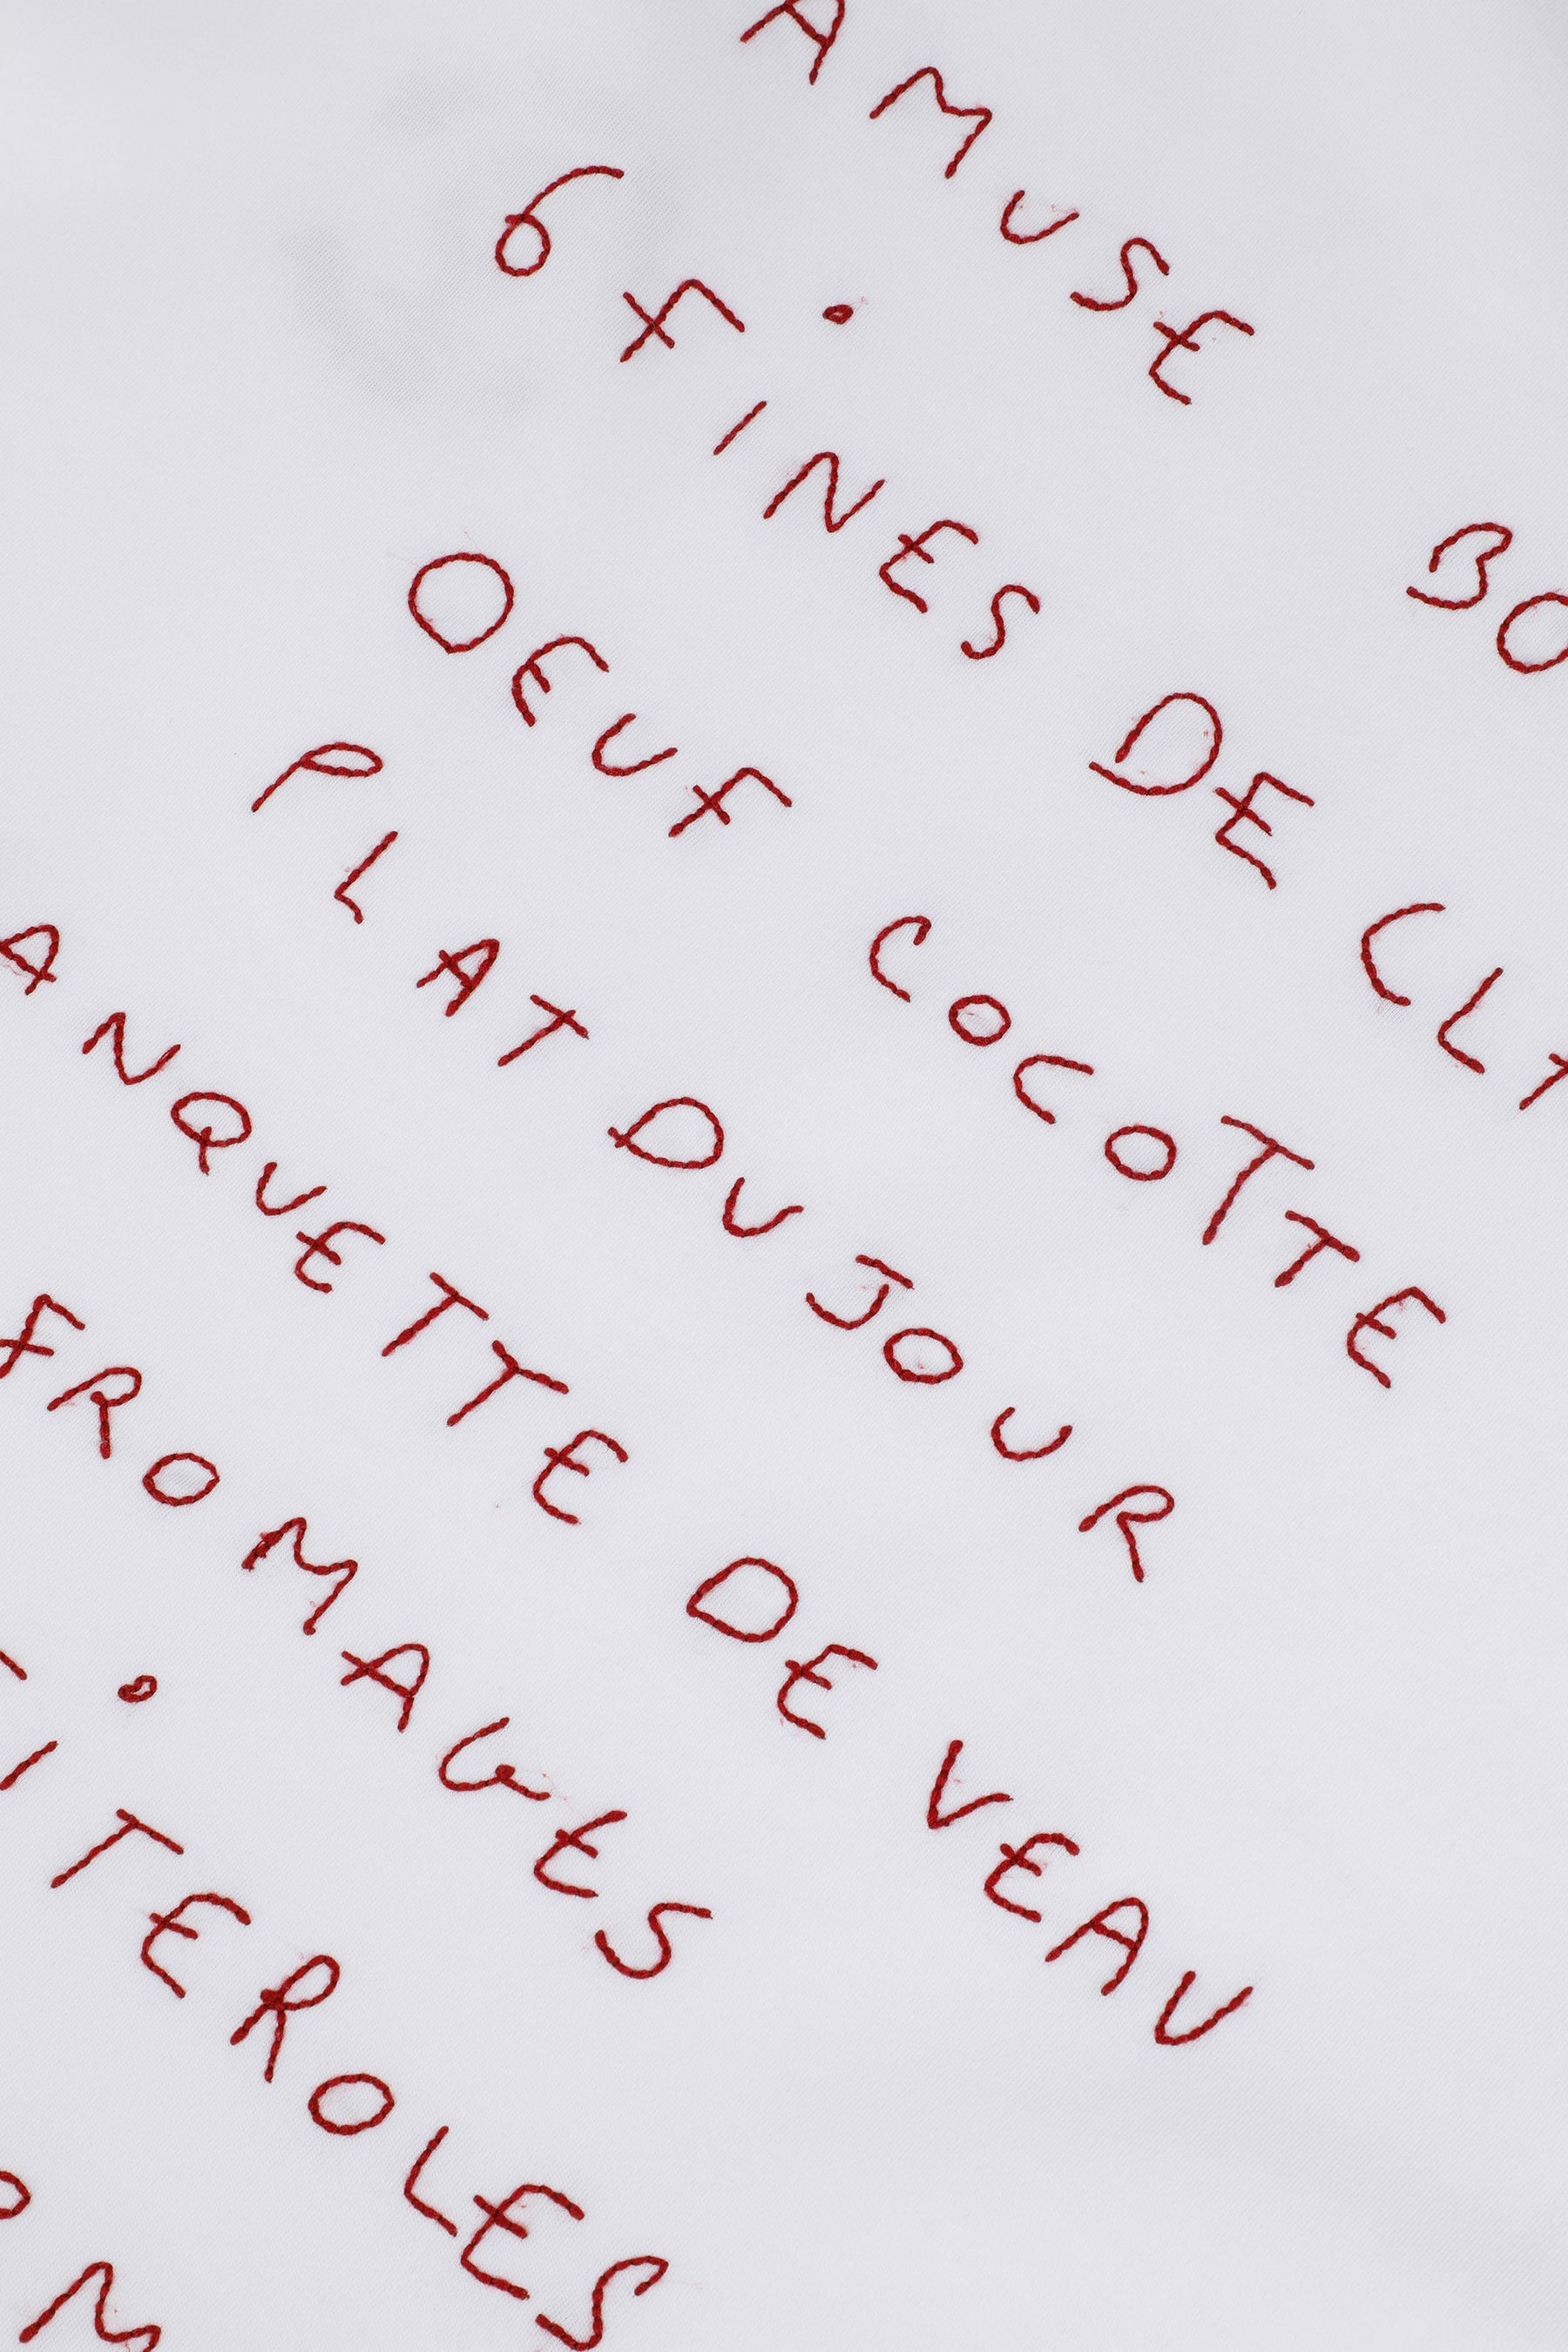 AMUSE BO
6 FINES DE CL
OEUF COCOTTE
PLAT DU JOUR
ANQUETTE DE VEAU
FROMAGES
ITEROLES
M